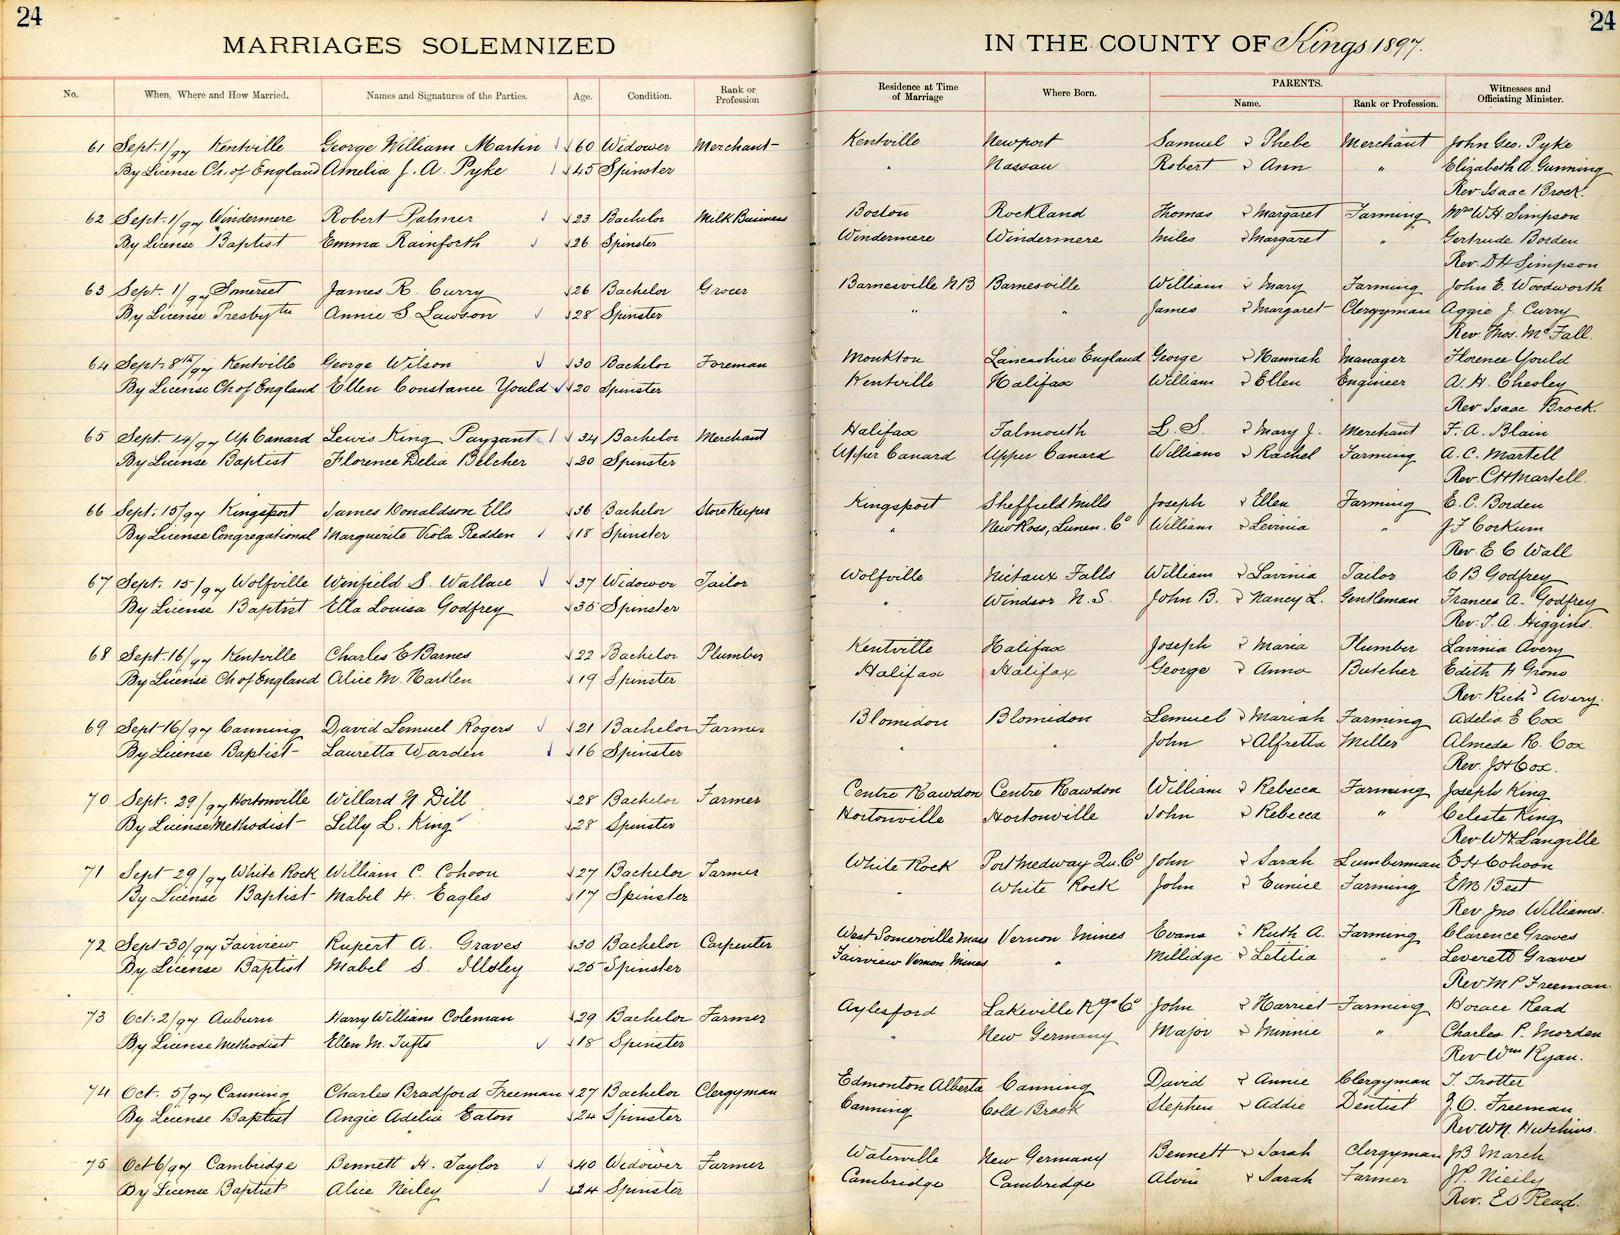 24
MARRIAGES SOLEMNIZED
No. When, Where and How Married. Names and Signatures of the Parties. Age. Condition. Rank or Profession
61 Sept. 1/97 Kentville George William Martin 60 Widower Merchant
By License Ch. of England Amelia J. A. Pyke 45 Spinster
62 Sept. 1/97 Windermere Robert Palmer 23 Bachelor Milk Business
By License Baptist Emma Rainforth 26 Spinster
63 Sept. 1/97 Somerset James R. Curry 26 Bachelor Grocer
By License Presbytn Annie S. Lawson 28 Spinster
64 Sept. 8th/97 Kentville George Wilson 30 Bachelor Foreman
By License Ch of England Ellen Constance Yould 20 Spinster
65 Sept 14/97 Up Canard Lewis King Payzant 34 Bachelor Merchant
By License Baptist Florence Delia Belcher 20 Spinster
66 Sept. 15/97 Kingsport James Donaldson Ells 36 Bachelor Store Keeper
By License Congregational Marguerite Viola Redden 18 Spinster
67 Sept. 15/97 Wolfville Winfield S. Wallace 37 Widower Tailor
By License Baptist Ella Louisa Godfrey 35 Spinster
68 Sept. 16/97 Kentville Charles E Barnes 22 Bachelor Plumber
By License Ch of England Alice M. Hartlen 19 Spinster
69 Sept 16/97 Canning David Lemuel Rogers 21 Bachelor Farmer
By License Baptist Lauretta Warden 16 Spinster
70 Sept. 29/97 Hortonville Willard N Dill 28 Bachelor Farmer
By License Methodist Lilly L. King 28 Spinster
71 Sept 29/97 White Rock William C. Cohoon 27 Bachelor Farmer
By License Baptist Mabel H. Eagles 17 Spinster
72 Sept 30/97 Fairview Rupert A. Graves 30 Bachelor Carpenter
By License Baptist Mabel S. Illsley 25 Spinster
73 Oct. 2/97 Auburn Harry Williams Coleman 29 Bachelor Farmer
By License Methodist Ellen M. Tufts 18 Spinster
74 Oct. 5/97 Canning Charles Bradford Freeman 27 Bachelor Clergyman
By License Baptist Angie Adelia Eaton 24 Spinster
75 Oct 6/97 Cambridge Bennett H. Taylor 40 Widower Farmer
By License Baptist Alice Neiley 24 Spinster
24
IN THE COUNTY OF Kings 1897.
Residence at Time of Marriage Where Born. PARENTS. Name. Rank or Profession. Witnesses and Officiating Minister.
Kentville Newport Samuel & Phebe Merchant John Geo. Pyke
" Nassau Robert & Ann " Elizabeth A. Gunning
Rev. Isaac Brock.
Boston Rockland Thomas & Margaret Farming Mrs W. H. Simpson
Windermere Windermere Miles & Margaret " Gertrude Borden
Rev. D H Simpson
Barnesville N B Barnesville William & Mary Farming John E. Woodworth
" " James & Margaret Clergyman Aggie J. Curry
Rev Thos. Mc Fall.
Monkton Lancashire England George & Hannah Manager Florence Yould
Kentville Halifax William & Ellen Engineer A. H. Chesley
Rev Isaac Brock.
Halifax Falmouth L. S. & Mary J. Merchant F. A. Blain
Upper Canard Upper Canard William & Rachel Farming A. C. Martell
Rev. C H Martell.
Kingsport Sheffield Mills Joseph & Ellen Farming E. C. Borden
" New Ross, Lunen. Co William & Levinia " J F Corkum
Rev. E C Wall
Wolfville Nictaux Falls William & Lavinia Tailor C B Godfrey
" Windsor N. S. John B. & Nancy L. Gentleman Frances A. Godfrey
Rev. T. A. Higgins.
Kentville Halifax Joseph & Maria Plumber Lavinia Avery
Halifax Halifax George & Anna Butcher Edith H Grono
Rev. Richd Avery.
Blomidon Blomidon Lemuel & Mariah Farming Adelia E Cox
" " John & Alfretta Miller Almeda R. Cox
Rev. J H Cox.
Centre Rawdon Centre Rawdon William & Rebecca Farming Joseph King
Hortonville Hortonville John & Rebecca " Celeste King
Rev W H Langille
White Rock Port Medway Qu. Co John & Sarah Lumberman E H Cohoon
" White Rock John & Eunice Farming E M Best
Rev. Jno. Williams.
West Somerville Mass Vernon Mines Evans & Ruth A. Farming Clarence Graves
Fairview Vernon Mines " Millidge & Letitia " Leverett Graves
Rev. M P Freeman.
Aylesford Lakeville Kgs Co John & Harriet Farming Horace Read
" New Germany Major & Minnie " Charles P. Morden
Rev Wm Ryan.
Edmonton Alberta Canning David & Annie Clergyman T. Trotter
Canning Cold Brook Stephen & Addie Dentist J. O. Freeman
Rev W N. Hutchins.
Waterville New Germany Bennett & Sarah Clergyman J B March
Cambridge Cambridge Alvin & Sarah Farmer J P. Nieily
Rev. E O Read.